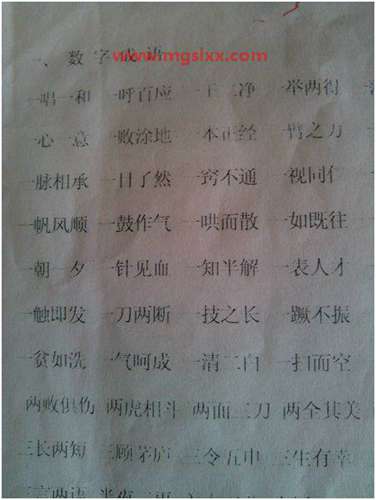 www.mgslxx.com
一、数字成语
一唱一和 一呼百应 一干二净 一举两得
一心一意 一败涂地 一本正经 一臂之力
一脉相承 一目了然 一窍不通 一视同仁
一帆风顺 一鼓作气 一哄而散 一如既往
一朝一夕 一针见血 一知半解 一表人才
一触即发 一刀两断 一技之长 一蹶不振
一贫如洗 一气呵成 一清二白 一扫而空
两败俱伤 两虎相斗 两面三刀 两全其美
三长两短 三顾茅庐 三令五申 三生有幸
三言两语 半夜三更